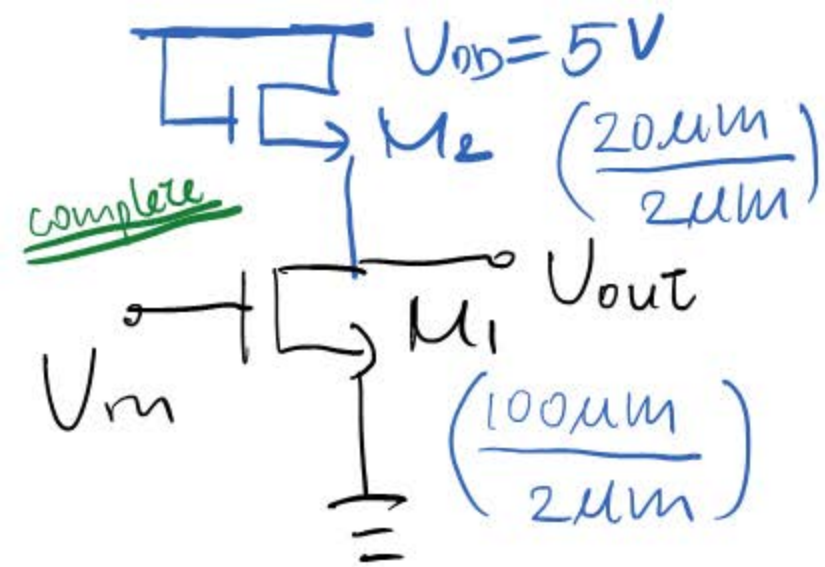 V_DD = 5V
M_2 (20μm / 2μm)
complete
V_out
M_1
V_in
(100μm / 2μm)